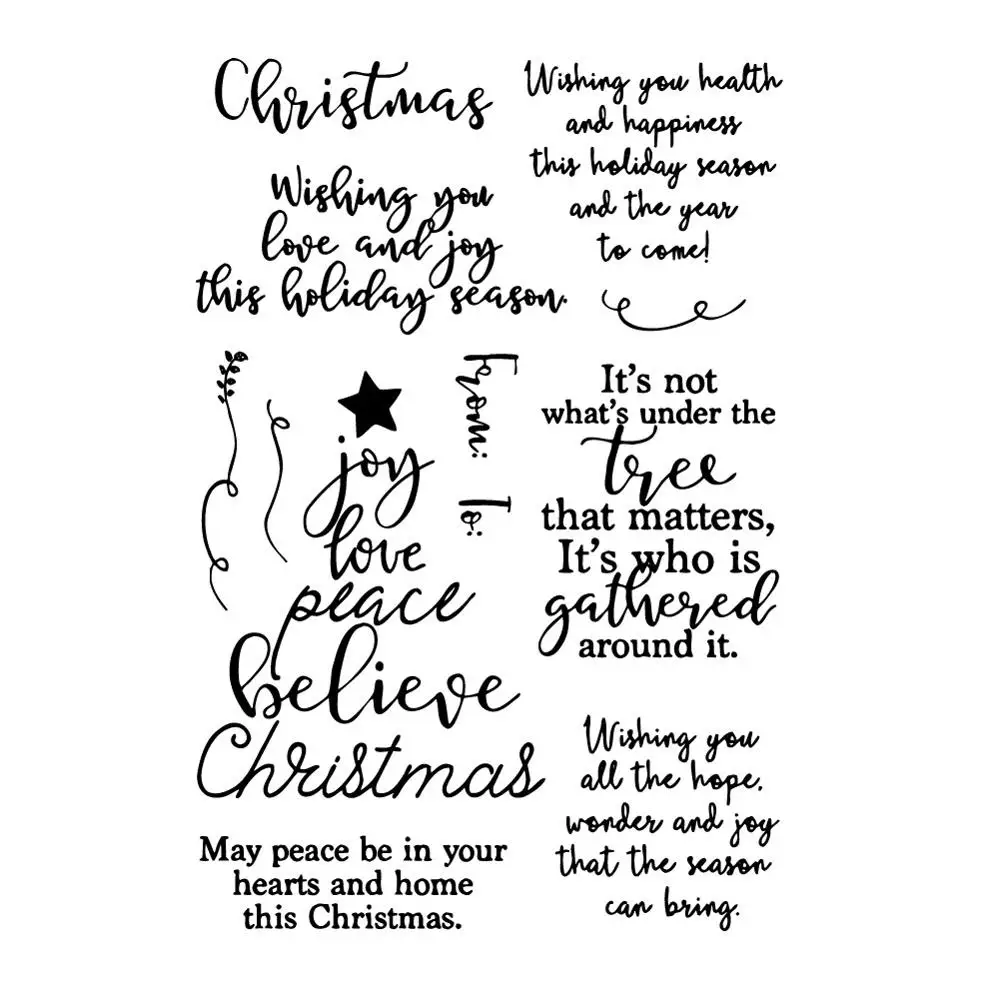 Christmas
Wishing you
love and joy
this holiday season.
Wishing you health
and happiness
this holiday season
and the year
to come!
joy
love
peace
believe
Christmas
From:
To:
It's not
what's under the
tree
that matters,
It's who is
gathered
around it.
May peace be in your
hearts and home
this Christmas.
Wishing you
all the hope,
wonder and joy
that the season
can bring.